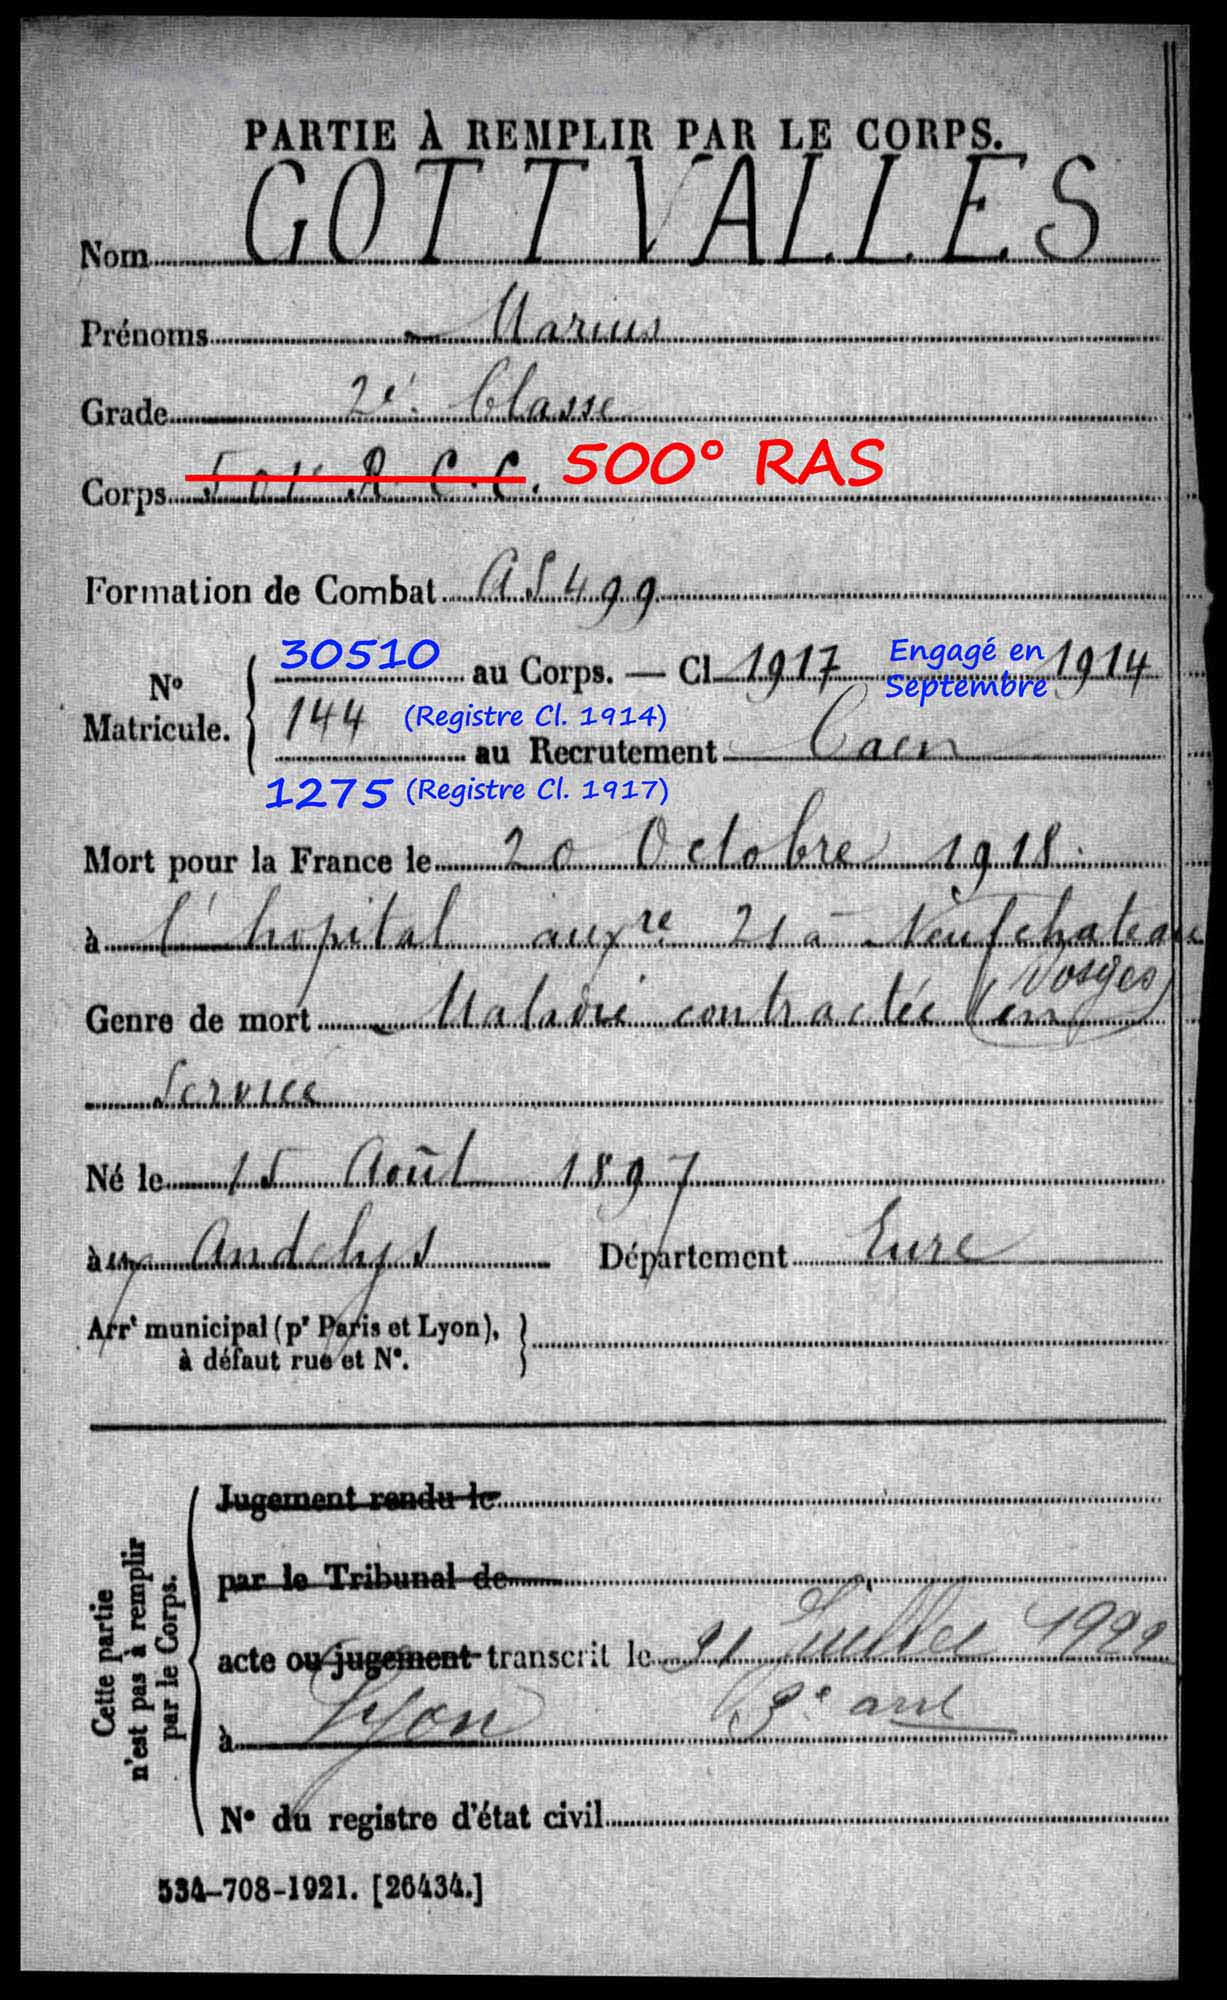 PARTIE À REMPLIR PAR LE CORPS.
Nom GOTTVALLES
Prénoms Marius
Grade 2e Classe
Corps 501e R. C. C. 500° RAS
Formation de Combat AS 499
30510 au Corps. — Cl 1917 Engagé en Septembre 1914
N° Matricule. 144 (Registre Cl. 1914)
au Recrutement Caen
1275 (Registre Cl. 1917)
Mort pour la France le 20 Octobre 1918.
à l'hopital auxre 21 à Neufchateau
(Vosges)
Genre de mort Maladie contractée en
Service
Né le 15 Août 1897
à Andelys Département Eure
Arrt municipal (pr Paris et Lyon), à défaut rue et N°.
Cette partie n'est pas à remplir par le Corps.
Jugement rendu le
par le Tribunal de
acte ou jugement transcrit le Juillet
à Lyon 3e arrt
N° du registre d'état civil
534-708-1921. [26434.]